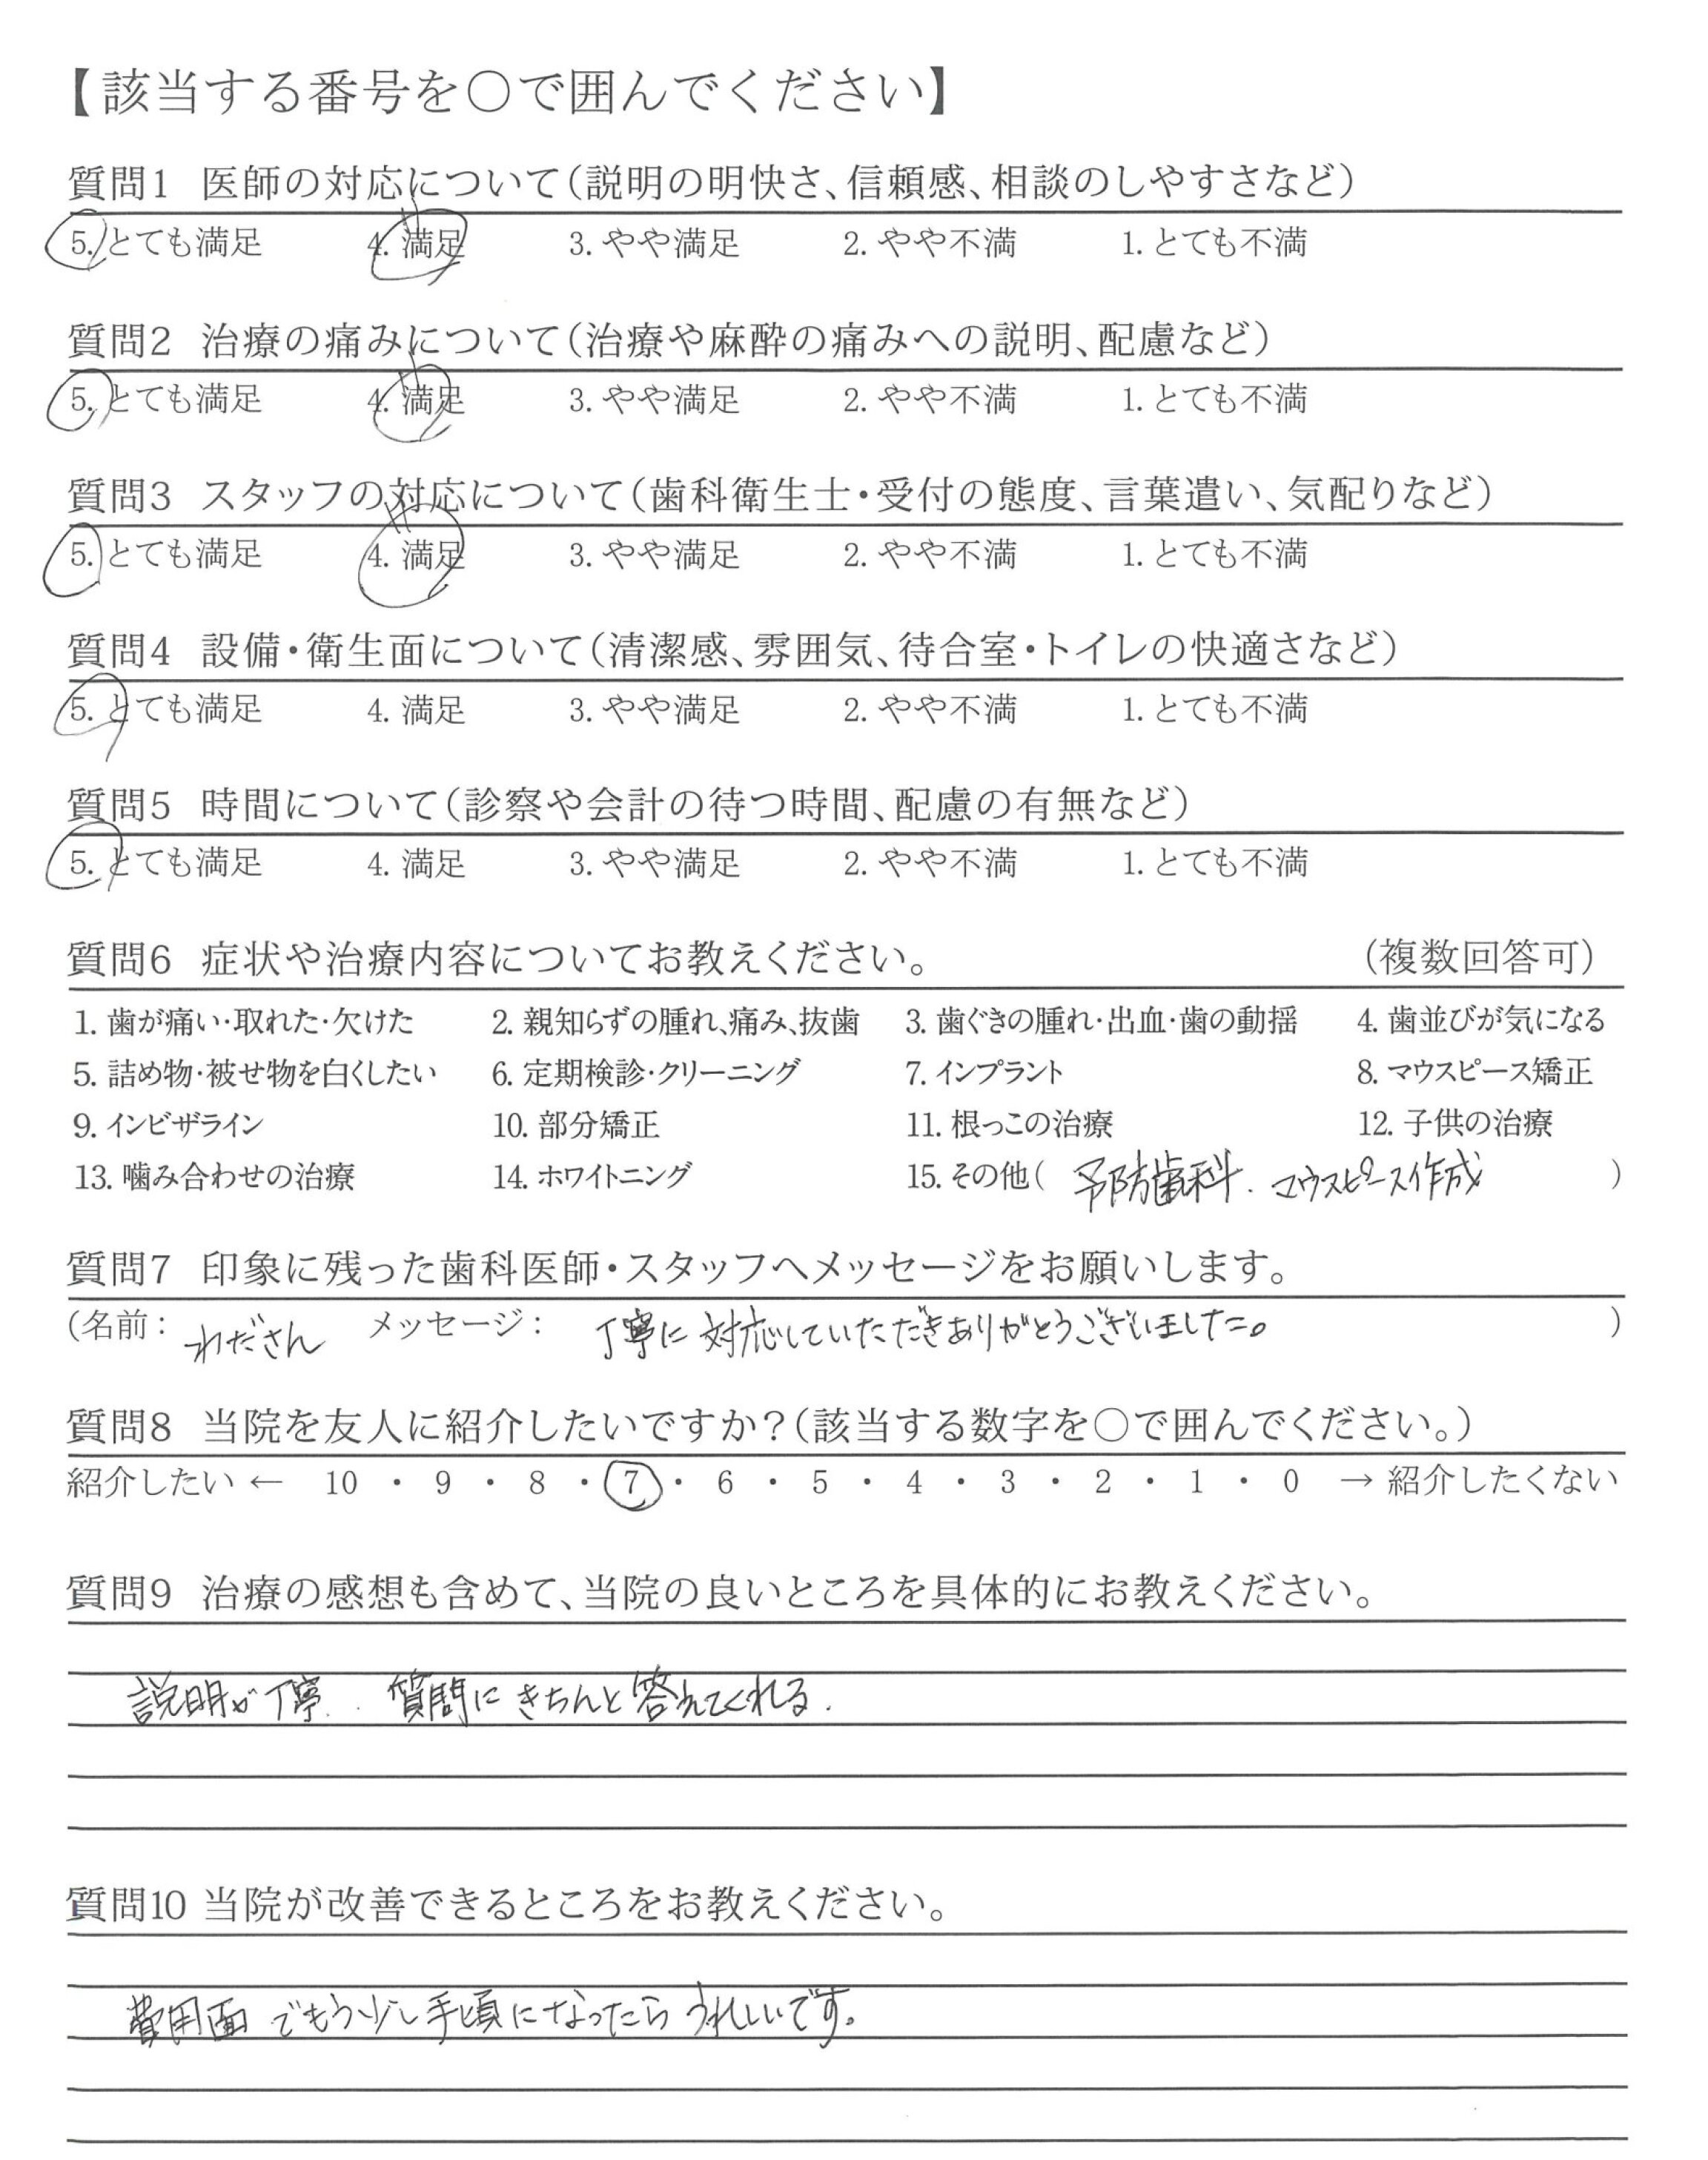 【該当する番号を○で囲んでください】
質問1 医師の対応について(説明の明快さ、信頼感、相談のしやすさなど)
5. とても満足 4. 満足 3. やや満足 2. やや不満 1. とても不満
質問2 治療の痛みについて(治療や麻酔の痛みへの説明、配慮など)
5. とても満足 4. 満足 3. やや満足 2. やや不満 1. とても不満
質問3 スタッフの対応について(歯科衛生士・受付の態度、言葉遣い、気配りなど)
5. とても満足 4. 満足 3. やや満足 2. やや不満 1. とても不満
質問4 設備・衛生面について(清潔感、雰囲気、待合室・トイレの快適さなど)
5. とても満足 4. 満足 3. やや満足 2. やや不満 1. とても不満
質問5 時間について(診察や会計の待つ時間、配慮の有無など)
5. とても満足 4. 満足 3. やや満足 2. やや不満 1. とても不満
質問6 症状や治療内容についてお教えください。 (複数回答可)
1. 歯が痛い・取れた・欠けた 2. 親知らずの腫れ、痛み、抜歯 3. 歯ぐきの腫れ・出血・歯の動揺 4. 歯並びが気になる
5. 詰め物・被せ物を白くしたい 6. 定期検診・クリーニング 7. インプラント 8. マウスピース矯正
9. インビザライン 10. 部分矯正 11. 根っこの治療 12. 子供の治療
13. 噛み合わせの治療 14. ホワイトニング 15. その他( 予防歯科. マウスピース作成 )
質問7 印象に残った歯科医師・スタッフへメッセージをお願いします。
(名前: わださん メッセージ: 丁寧に対応していただきありがとうございました。 )
質問8 当院を友人に紹介したいですか?(該当する数字を○で囲んでください。)
紹介したい ← 10 ・ 9 ・ 8 ・ 7 ・ 6 ・ 5 ・ 4 ・ 3 ・ 2 ・ 1 ・ 0 → 紹介したくない
質問9 治療の感想も含めて、当院の良いところを具体的にお教えください。
説明が丁寧. 質問にきちんと答えてくれる.
質問10 当院が改善できるところをお教えください。
費用面でもう少し手頃になったらうれしいです。